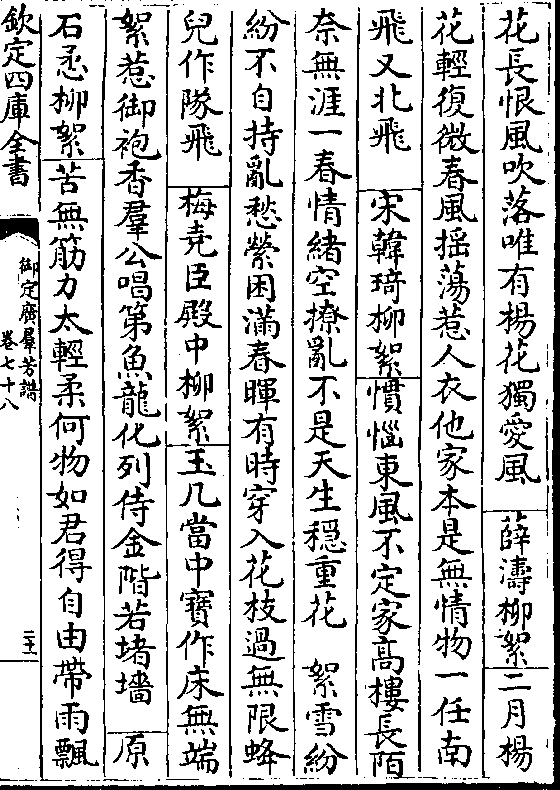 花長恨風吹落唯有楊花獨愛風　薛濤柳絮二月楊
花輕復微春風搖蕩惹人衣他家本是無情物一任南
飛又北飛　宋韓琦柳絮慣惱東風不定家高樓長陌
奈無涯一春情緒空撩亂不是天生穩重花　絮雪紛
紛不自持亂愁縈困滿春暉有時穿入花枝過無限蜂
兒作隊飛　梅堯臣殿中柳絮玉几當中寶作床無端
絮惹御袍香羣公唱第魚龍化列侍金階若堵墻　原
石孞柳絮苦無筋力太輕柔何物如君得自由帶雨飄
欽定四庫全書
御定廣羣芳譜
卷七十八